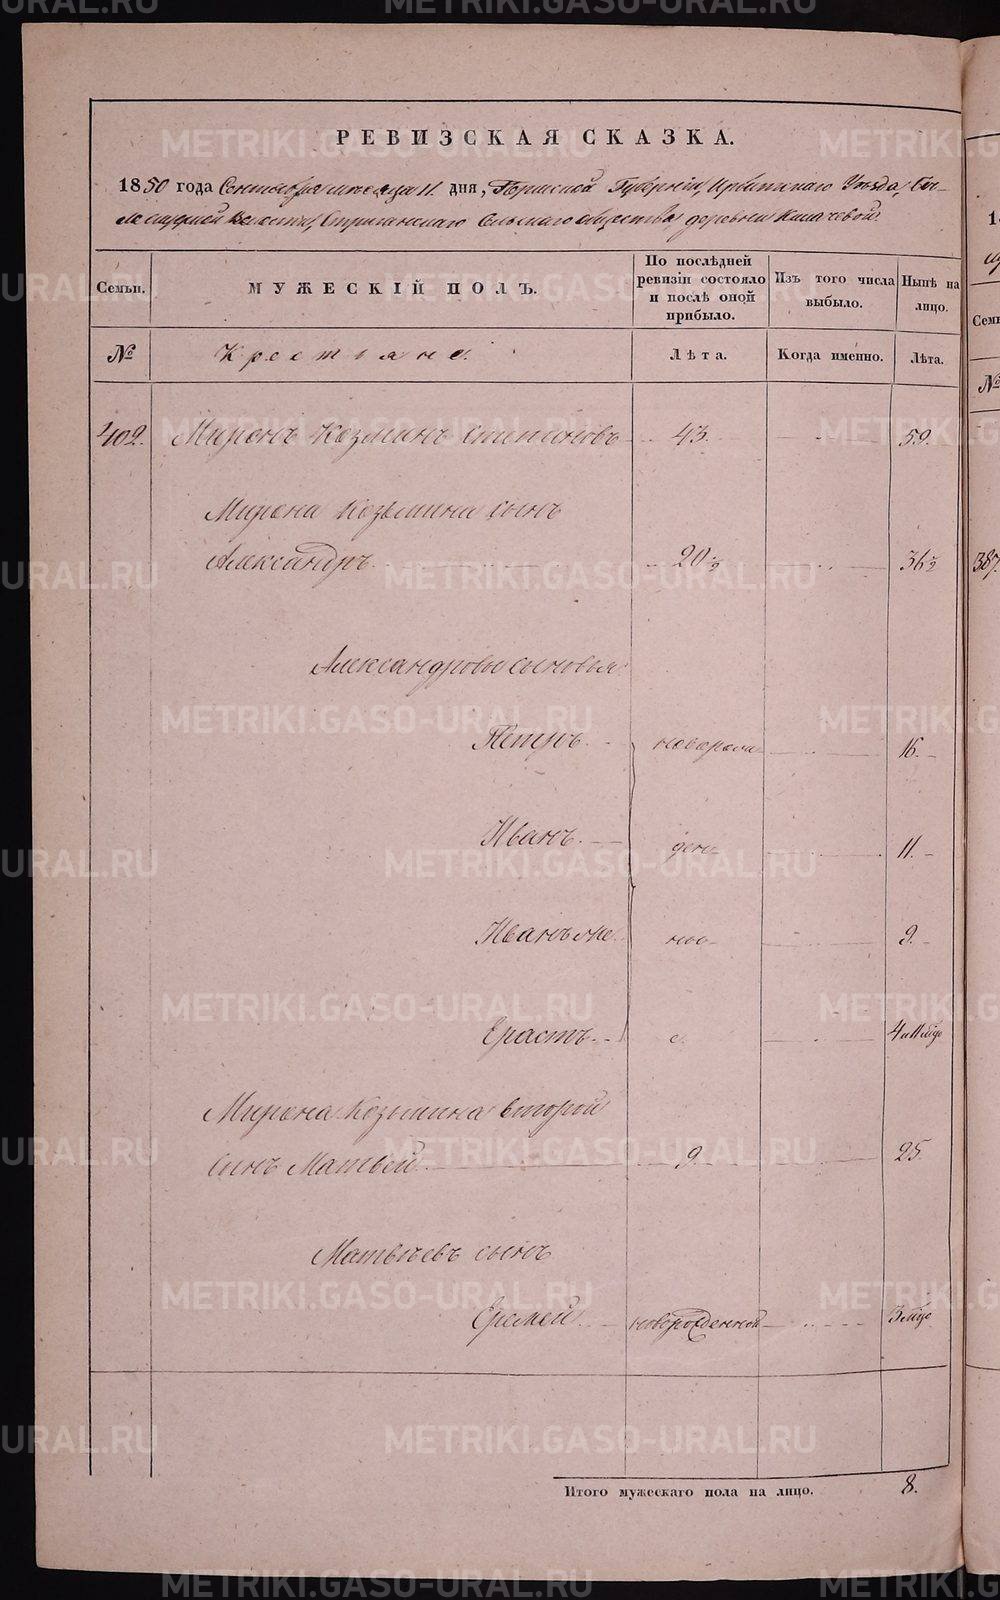 РЕВИЗСКАЯ СКАЗКА.
1850 года Сентября месяца 11 дня, Пермской Губерніи, Ирбитскаго Уѣзда,
волости, Стриганскаго Сельскаго общества деревни Кипачевой.
Семьи. МУЖЕСКІЙ ПОЛЪ. По послѣдней ревизіи состояло и послѣ оной прибыло. Изъ того числа выбыло. Нынѣ на лицо.
№ Крестьяне. Лѣта. Когда именно. Лѣта.
402. Миронъ Козминъ Степановъ 43. 59.
Мирона Козьмина сынъ
Александръ 20½ 36½
Александровы сыновья
Петръ новорож 16.
Иванъ ден 11.
Иванъ же 9.
Ерастъ е. 4 и 11 мѣсц
Мирона Козьмина второй
сынъ Матвей 9. 25.
Матвѣевъ сынъ
Еремей новорожденной 3 мѣсц
Итого мужескаго пола на лицо. 8.
387.
№
METRIKI.GASO-URAL.RU